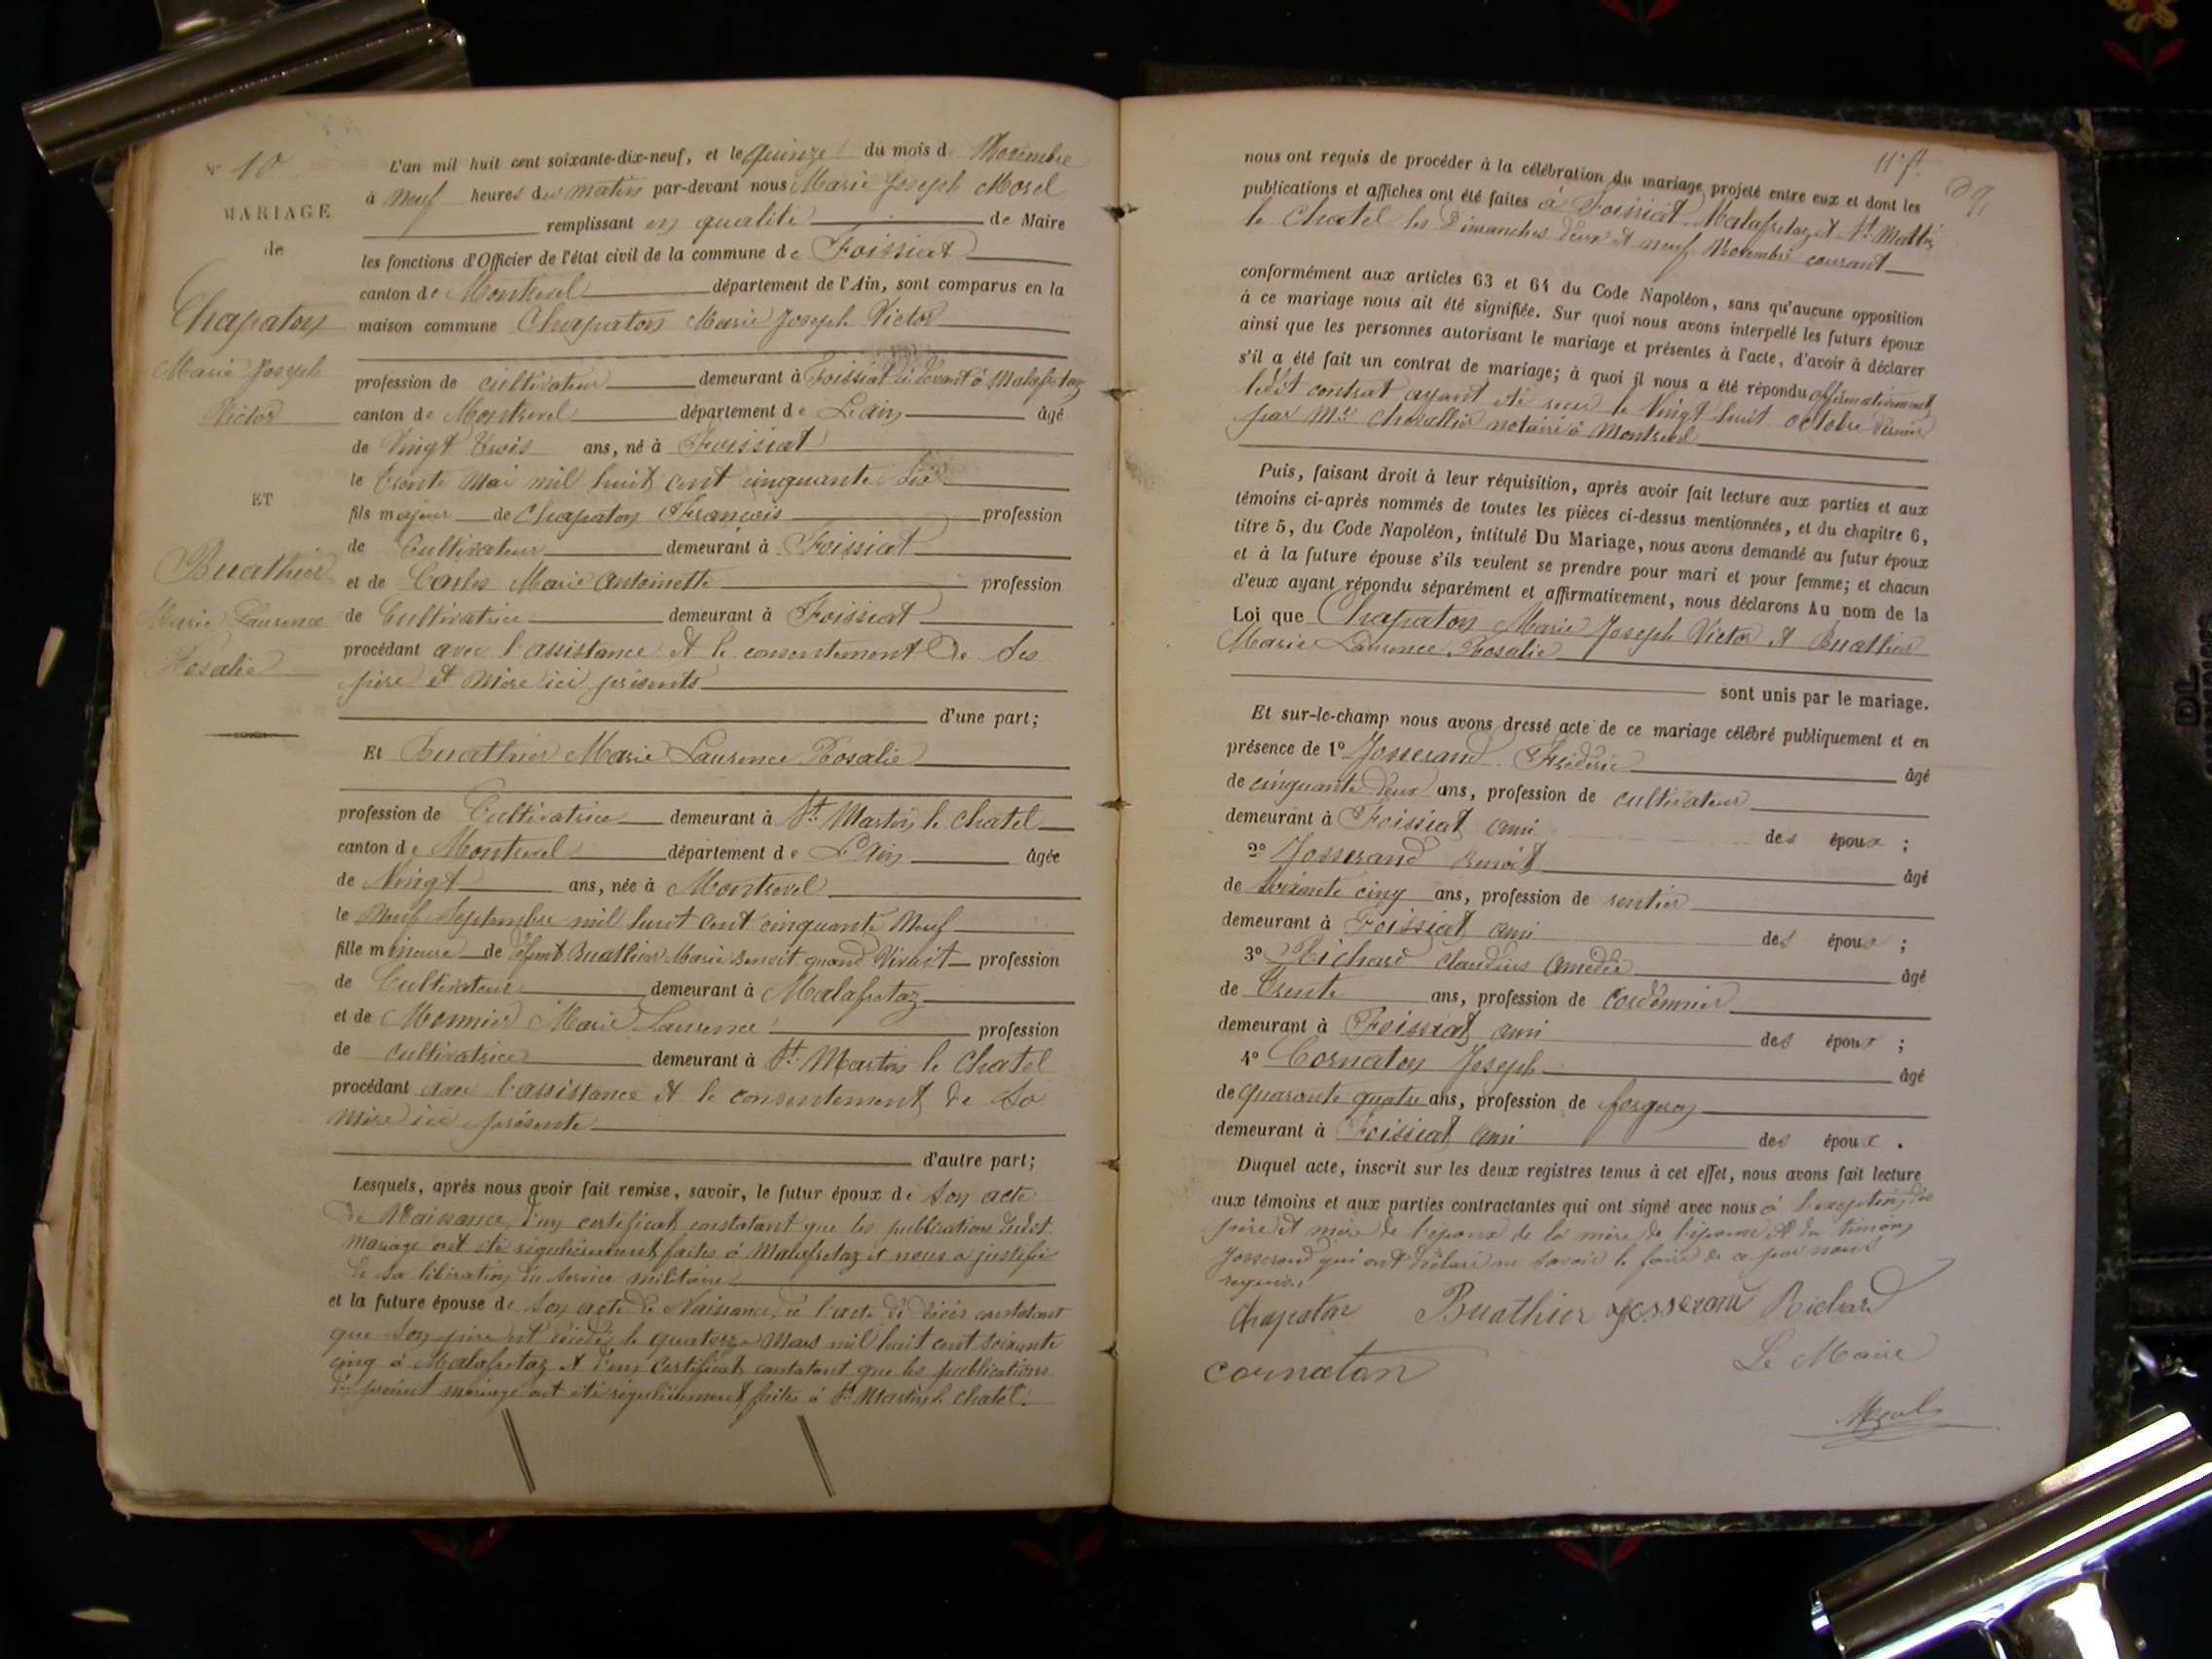 N° 10
MARIAGE
de
Chapaton
Marie Joseph
Victor
ET
Buathier
Marie Laurence
Rosalie
L'an mil huit cent soixante-dix-neuf, et le quinze du mois de Novembre
à neuf heures du matin par-devant nous Marie Joseph Morel
remplissant en qualité de Maire
les fonctions d'Officier de l'état civil de la commune de Foissiat
canton de Montrevel département de l'Ain, sont comparus en la
maison commune Chapaton Marie Joseph Victor
profession de cultivateur demeurant à Foissiat ci devant à Malafretaz
canton de Montrevel département de L'ain âgé
de Vingt trois ans, né à Foissiat
le trente Mai mil huit cent cinquante six
fils majeur de Chapaton François profession
de Cultivateur demeurant à Foissiat
et de Carles Marie Antoinette profession
de Cultivatrice demeurant à Foissiat
procédant avec l'assistance et le consentement de ses
père et mère ici présents
d'une part;
Et Buathier Marie Laurence Rosalie
profession de Cultivatrice demeurant à St. Martin le Chatel
canton de Montrevel département de L'Ain âgée
de Vingt ans, née à Montrevel
le neuf Septembre mil huit cent cinquante neuf
fille mineure de défunt Buathier Marie Benoit quand vivait profession
de Cultivateur demeurant à Malafretaz
et de Monnier Marie Laurence profession
de cultivatrice demeurant à St. Martin le Chatel
procédant avec l'assistance et le consentement de sa
mère ici présente
d'autre part;
Lesquels, après nous avoir fait remise, savoir, le futur époux de son acte
de Naissance, d'un certificat constatant que les publications dudit
mariage ont été régulièrement faites à Malafretaz et nous a justifié
de sa libération du service militaire
et la future épouse de son acte de Naissance, de l'acte de décès constatant
que son père est décédé le quatorze Mars mil huit cent soixante
cinq à Malafretaz et d'un certificat constatant que les publications
du présent mariage ont été régulièrement faites à St Martin le Chatel.
11e ft
nous ont requis de procéder à la célébration du mariage projeté entre eux et dont les
publications et affiches ont été faites à Foissiat, Malafretaz et St. Martin
le Chatel les Dimanches deux et neuf Novembre courant
conformément aux articles 63 et 64 du Code Napoléon, sans qu'aucune opposition
à ce mariage nous ait été signifiée. Sur quoi nous avons interpellé les futurs époux
ainsi que les personnes autorisant le mariage et présentes à l'acte, d'avoir à déclarer
s'il a été fait un contrat de mariage; à quoi il nous a été répondu affirmativement
ledit contrat ayant été reçu le Vingt huit octobre dernier
par Me Chevallier notaire à Montrevel
Puis, faisant droit à leur réquisition, après avoir fait lecture aux parties et aux
témoins ci-après nommés de toutes les pièces ci-dessus mentionnées, et du chapitre 6,
titre 5, du Code Napoléon, intitulé Du Mariage, nous avons demandé au futur époux
et à la future épouse s'ils veulent se prendre pour mari et pour femme; et chacun
d'eux ayant répondu séparément et affirmativement, nous déclarons Au nom de la
Loi que Chapaton Marie Joseph Victor et Buathier
Marie Laurence Rosalie
sont unis par le mariage.
Et sur-le-champ nous avons dressé acte de ce mariage célébré publiquement et en
présence de 1° Josserand Frédéric âgé
de cinquante deux ans, profession de cultivateur
demeurant à Foissiat ami des époux ;
2° Josserand Benoit âgé
de soixante cinq ans, profession de rentier
demeurant à Foissiat ami des époux ;
3° Richard Claudius Amédée âgé
de trente ans, profession de cordonnier
demeurant à Foissiat ami des époux ;
4° Cornaton Joseph âgé
de quarante quatre ans, profession de forgeron
demeurant à Foissiat ami des époux .
Duquel acte, inscrit sur les deux registres tenus à cet effet, nous avons fait lecture
aux témoins et aux parties contractantes qui ont signé avec nous à l'exception des
père et mère de l'époux de la mère de l'épouse et du témoin
Josserand qui ont déclaré ne savoir le faire de ce par nous
requis.
Chapaton Buathier Josserand Richard
cornaton Le Maire
Morel